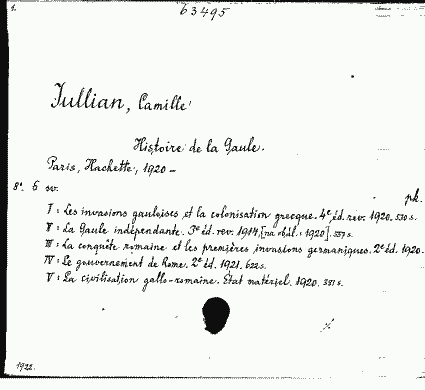 1.
63495
Jullian, Camille
Histoire de la Gaule.
Paris, Hachette, 1920 –
8°. 6 sv.
pk.
I : Les invasions gauloises et la colonisation grecque. 4e éd. rev. 1920. 530 s.
II : La Gaule indépendante. 3e éd. rev. 1914, [na obál.: 1920]. 557 s.
III : La conquête romaine et les premières invasions germaniques. 2e éd. 1920.
IV : Le gouvernement de Rome. 2e éd. 1921. 622 s.
V : La civilisation gallo-romaine. État matériel. 1920. 381 s.
1922.